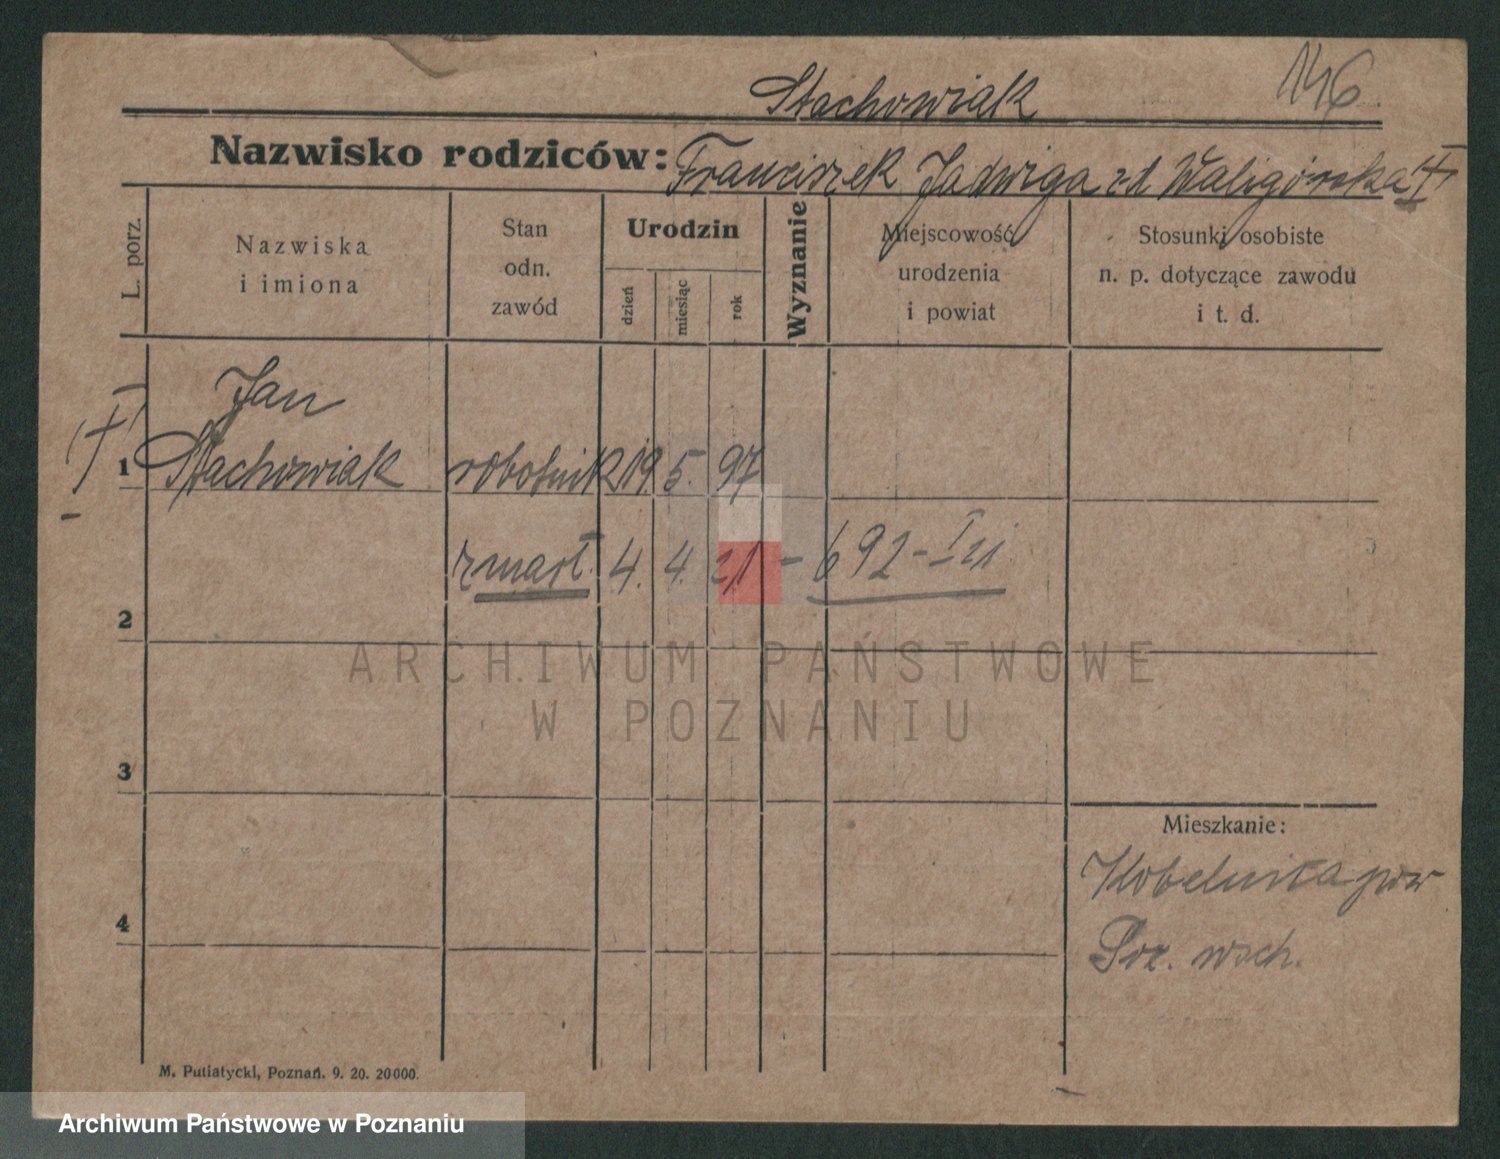 146
Stachowiak
Nazwisko rodziców: Franciszek Jadwiga zd Waligórska
L. porz.
Nazwiska
i imiona
Stan
odn.
zawód
Urodzin
dzień
miesiąc
rok
Wyznanie
Miejscowość
urodzenia
i powiat
Stosunki osobiste
n. p. dotyczące zawodu
i t. d.
Jan
1 Stachowiak robotnik 19. 5. 97
zmarł. 4. 4. 21 - 692 - I 21
2
ARCHIWUM PAŃSTWOWE
W POZNANIU
3
Mieszkanie:
Kobelnica pow
4
Poz. wsch.
M. Putiatycki, Poznań. 9. 20. 20000.
Archiwum Państwowe w Poznaniu